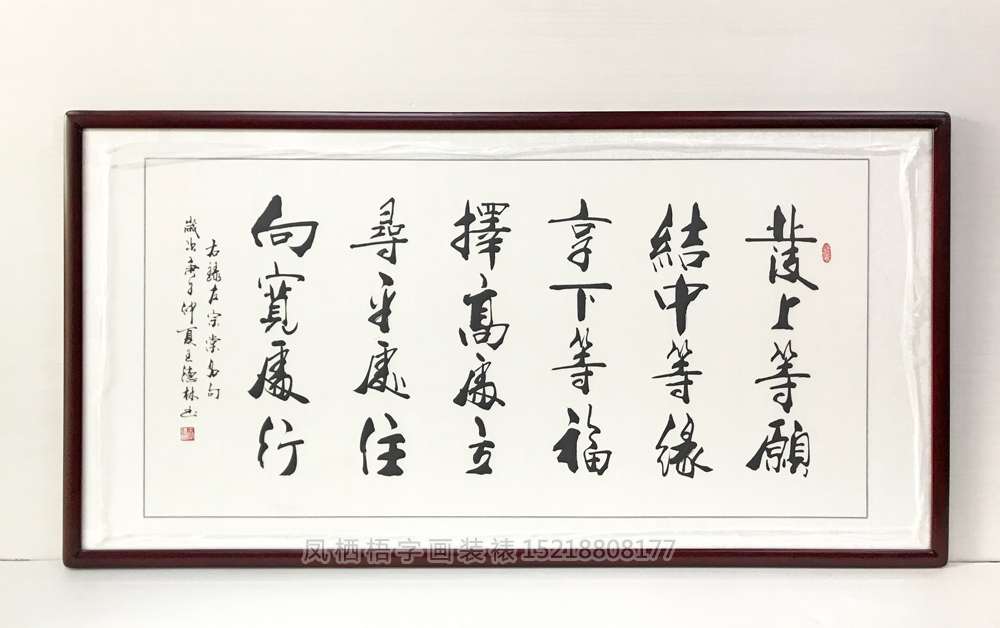 發上等願
結中等緣
享下等福
擇高處立
尋平處住
向寬處行
右録左宗棠名句
歲次庚子仲夏王德林書
凤栖梧字画装裱15218808177